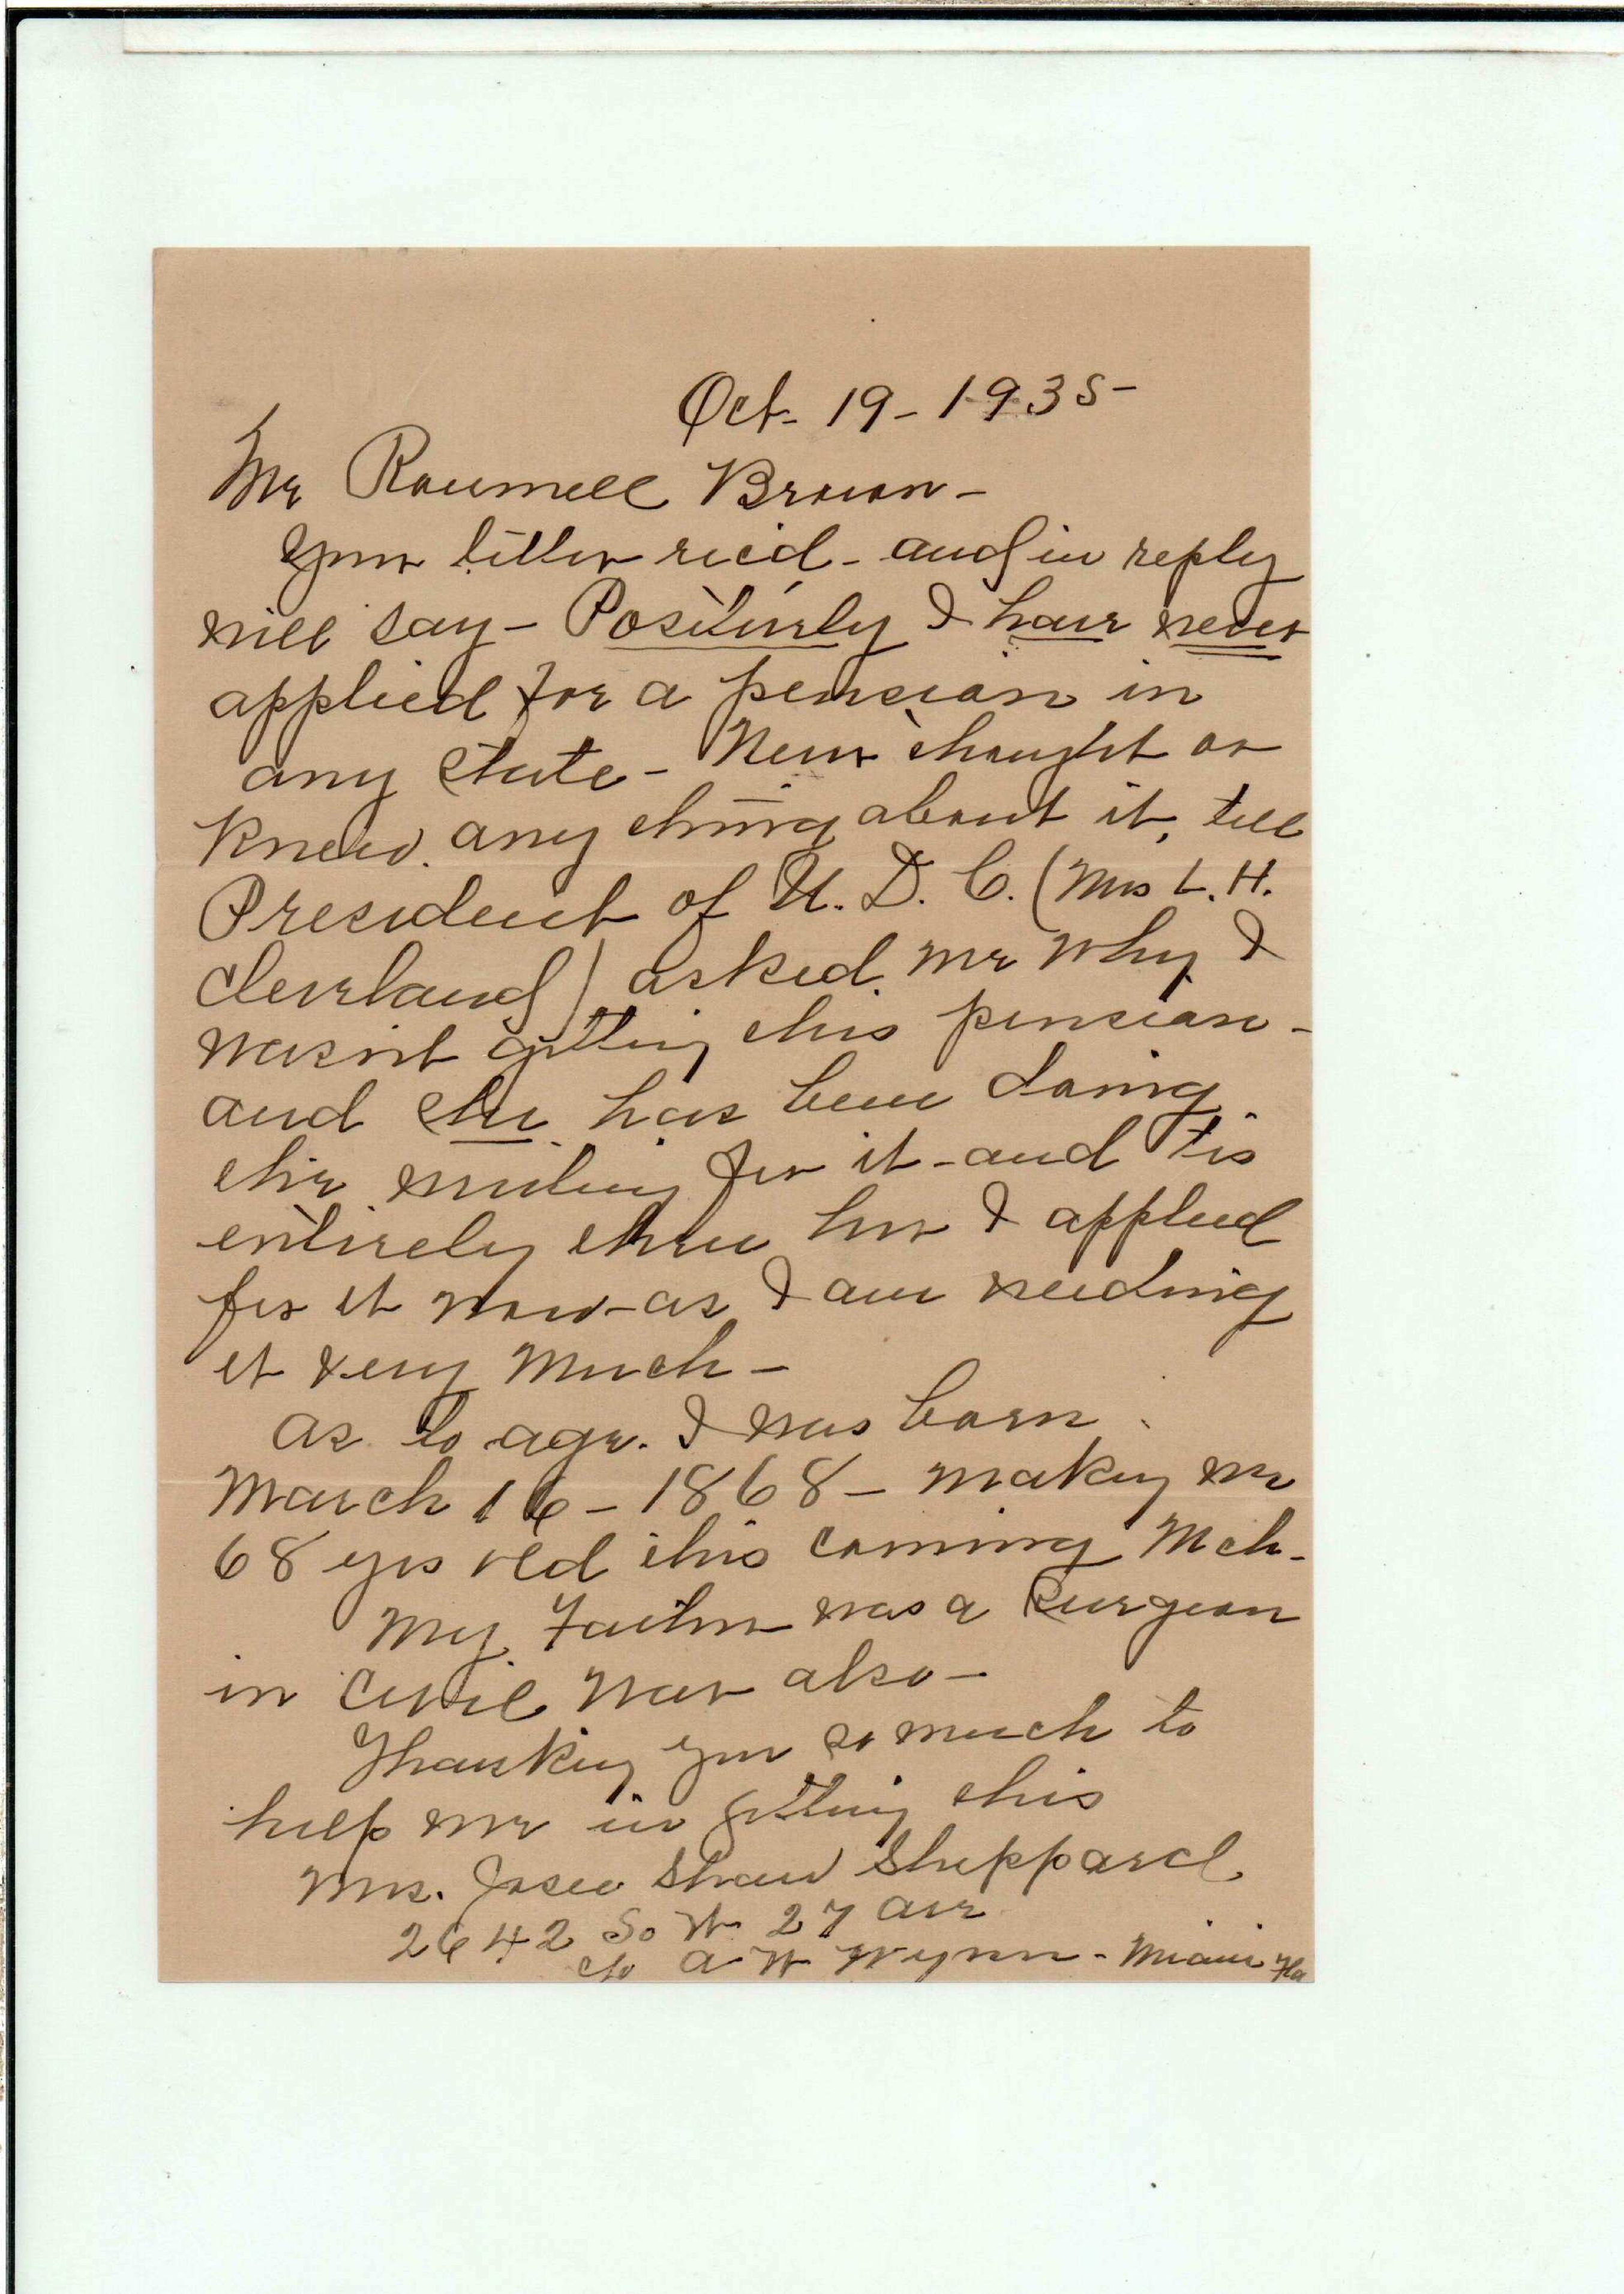 Oct- 19 - 1935-
Mr Roumell Brown -
Your letter rec'd - and in reply
will say - Positively I have never
applied for a pension in
any state - Never thought or
knew anything about it, till
President of U. D. C. (Mrs L. H.
Cleveland) asked me why I
wasn't getting this pension -
and she has been doing
the writing for it - and 'tis
entirely thru her I applied
for it now - as I am needing
it very much -
As to age. I was born
March 16 - 1868 - making me
68 yrs old this coming Mch -
My Father was a Surgeon
in Civil War also -
Thanking you so much to
help me in getting this
Mrs. Josie Shaw Sheppard
2642 So W 27 Ave
c/o A W Wynn - Miami Fla